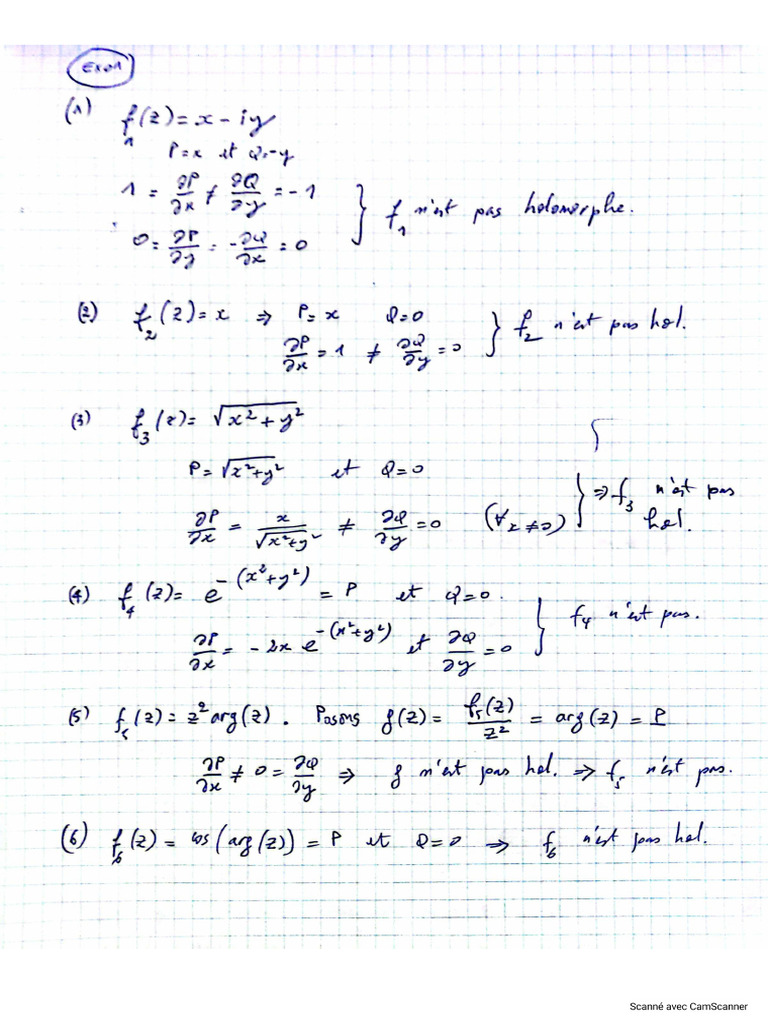 Exo1
(1) f₁(z) = x - iy
P = x et Q = -y
1 = ∂P/∂x ≠ ∂Q/∂y = -1
0 = ∂P/∂y = -∂Q/∂x = 0 } f₁ n'est pas holomorphe.
(2) f₂(z) = x ⇒ P = x Q = 0
∂P/∂x = 1 ≠ ∂Q/∂y = 0 } f₂ n'est pas hol.
(3) f₃(z) = √(x² + y²)
P = √(x² + y²) et Q = 0
∂P/∂x = x/√(x² + y²) ≠ ∂Q/∂y = 0 (∀z ≠ 0) } ⇒ f₃ n'est pas hol.
(4) f₄(z) = e^-(x² + y²) = P et Q = 0.
∂P/∂x = -2x e^-(x² + y²) et ∂Q/∂y = 0 } f₄ n'est pas.
(5) f₅(z) = z² arg(z). Posons g(z) = f₅(z)/z² = arg(z) = P
∂P/∂x ≠ 0 = ∂Q/∂y ⇒ g n'est pas hol. ⇒ f₅ n'est pas.
(6) f₆(z) = cos(arg(z)) = P et Q = 0 ⇒ f₆ n'est pas hol.
Scanné avec CamScanner